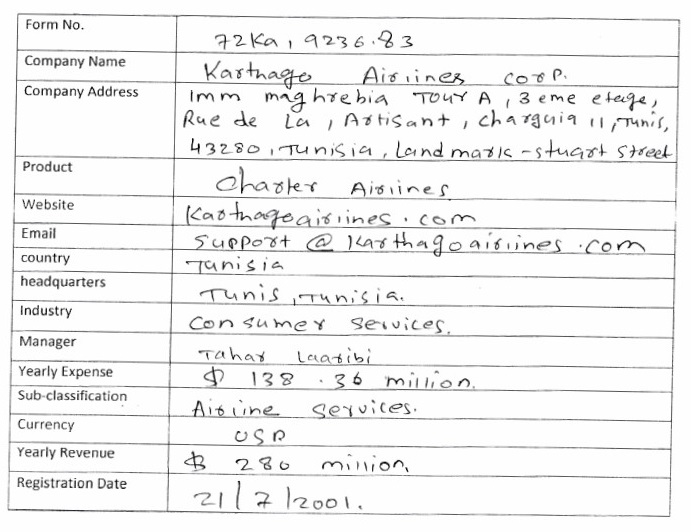 Form No. 72Ka, 9236.83
Company Name Karthago Airlines corp.
Company Address Imm maghrebia Tour A, 3 eme etage,
Rue de La, Artisant, charguia 11, Tunis,
43280, Tunisia, Landmark - stuart street
Product Charter Airlines
Website Karthagoairlines.com
Email support @ karthagoairlines.com
country Tunisia
headquarters Tunis, Tunisia.
Industry Consumer Services.
Manager Tahar Laaribi
Yearly Expense $ 138.36 million.
Sub-classification Airline Services.
Currency USD
Yearly Revenue $ 280 million.
Registration Date 21/7/2001.